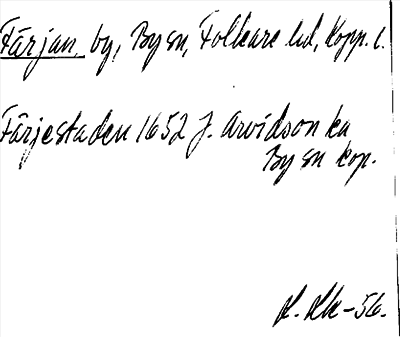 Färjan, by, By sn, Folkare hd, Kopp. l.
Färjestaden 1652 J. Arvidson ka
By sn kop.
-56.